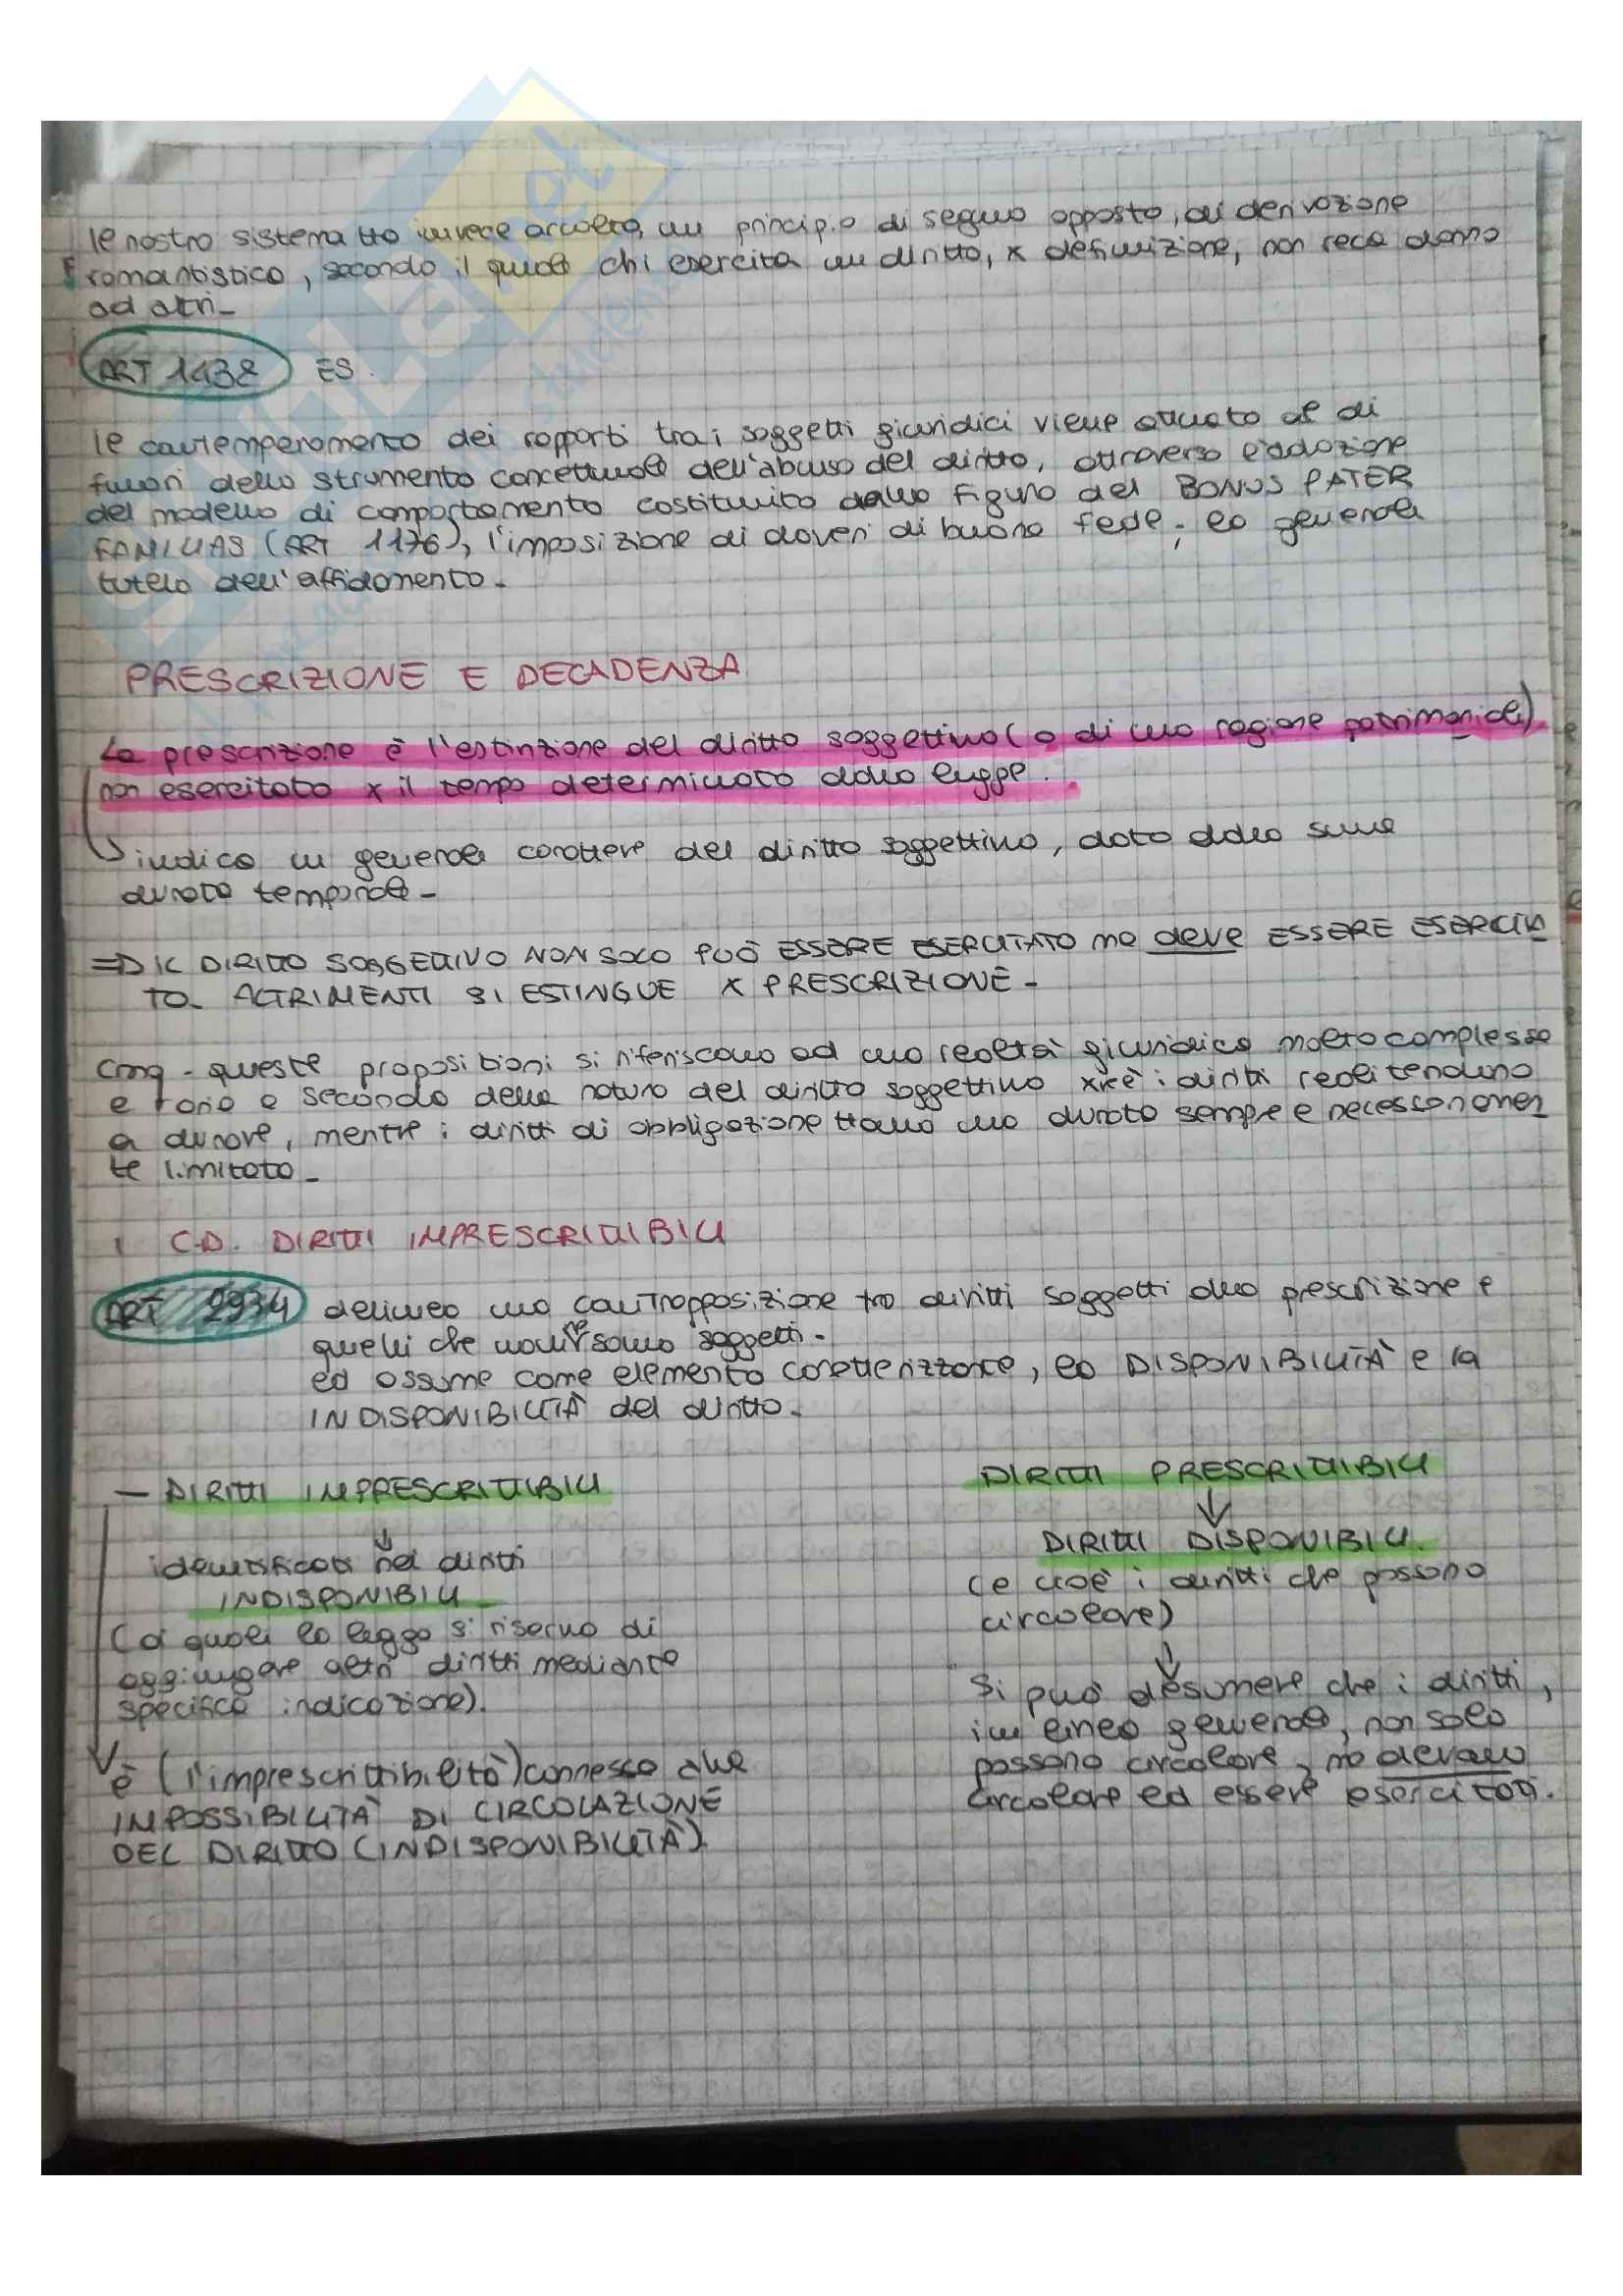 Il nostro sistema ha invece accolto, un principio di segno opposto, di derivazione
romantistico, secondo il quale chi esercita un diritto, x definizione, non reca danno
ad altri_
ART 1438 ES.
Il contemperamento dei rapporti tra i soggetti giuridici viene attuato al di
fuori dello strumento concettuale dell'abuso del diritto, attraverso l'adozione
del modello di comportamento costituito dalla figura del BONUS PATER
FAMILIAS (ART 1176), l'imposizione di doveri di buona fede, la generale
tutela dell'affidamento.
PRESCRIZIONE E DECADENZA
La prescrizione è l'estinzione del diritto soggettivo (o di una ragione patrimoniale)
non esercitato x il tempo determinato dalla legge.
indica in generale carattere del diritto soggettivo, dato dalla sua
durata temporale_
=D IL DIRITTO SOGGETTIVO NON SOLO PUÒ ESSERE ESERCITATO ma deve ESSERE ESERCITA
TO_ ALTRIMENTI SI ESTINGUE X PRESCRIZIONE_
Cmq - queste proposizioni si riferiscono ad una realtà giuridica molto complessa
e varia a seconda della natura del diritto soggettivo xkè i diritti reali tendono
a durare, mentre i diritti di obbligazione hanno una durata sempre e necessariamen
te limitata_
I C.D. DIRITTI IMPRESCRITTIBILI
ART 2934 delinea una contrapposizione tra diritti soggetti alla prescrizione e
quelli che non ne sono soggetti.
ed assume come elemento caratterizzante, la DISPONIBILITÀ e la
INDISPONIBILITÀ del diritto.
— DIRITTI IMPRESCRITTIBILI
identificati nei diritti
INDISPONIBILI
(ai quali la legge si riserva di
aggiungere altri diritti mediante
specifica indicazione).
è (l'imprescrittibilità) connessa alla
IMPOSSIBILITÀ DI CIRCOLAZIONE
DEL DIRITTO (INDISPONIBILITÀ).
DIRITTI PRESCRITTIBILI
DIRITTI DISPONIBILI
(e cioè i diritti che possono
circolare)
Si può desumere che i diritti,
in linea generale, non solo
possono circolare, ma devono
circolare ed essere esercitati.